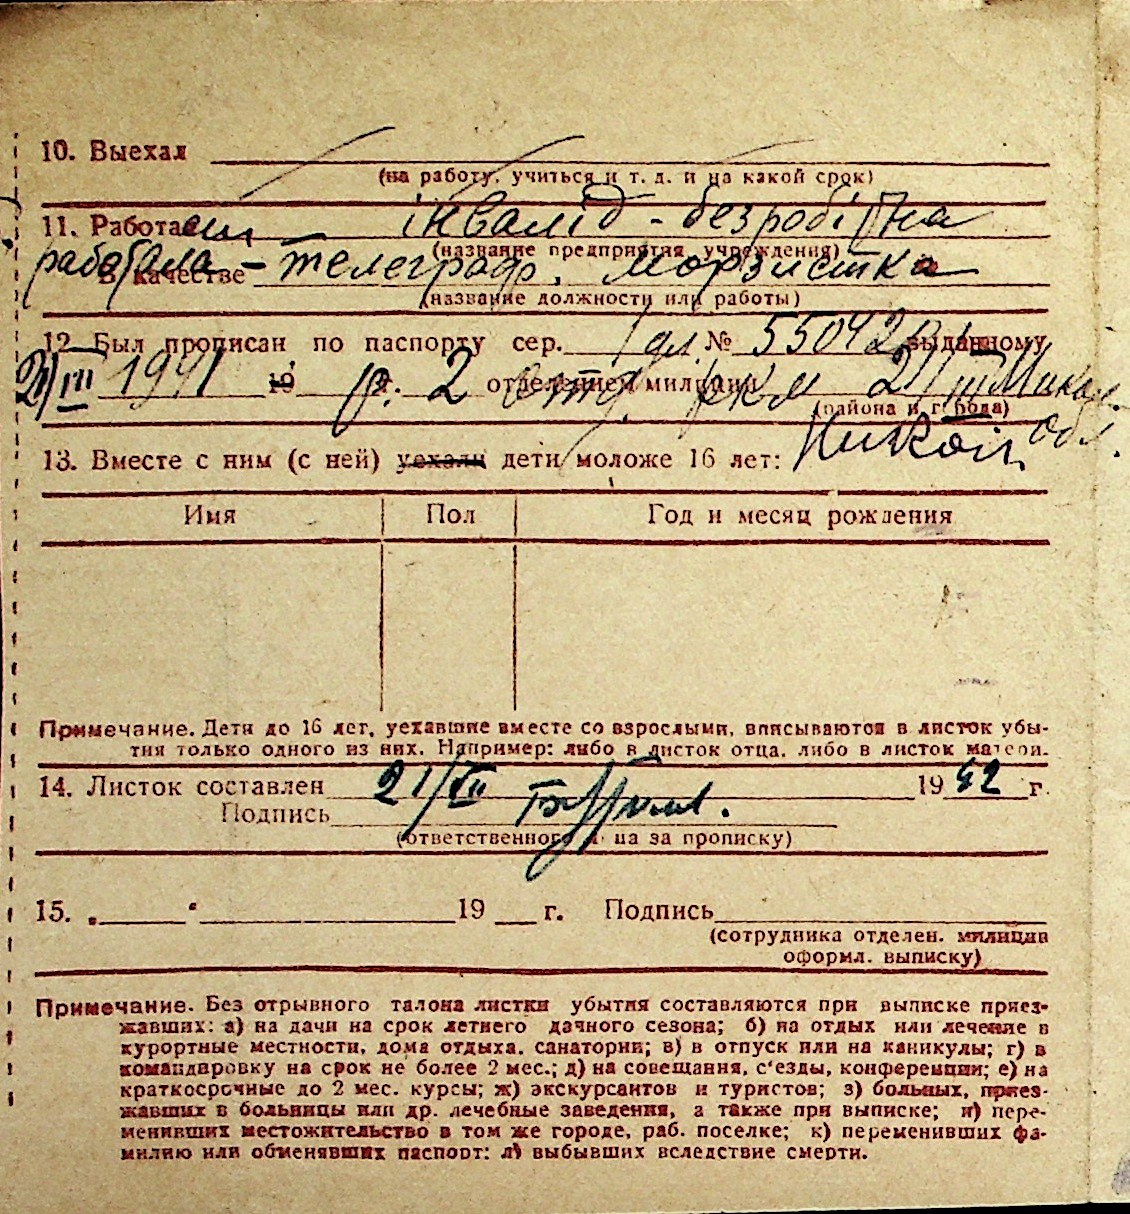 10. Выехал
(на работу, учиться и т. д. и на какой срок)
інвалід - безробітна
11. Работа
(название предприятия, учреждения)
работала - телеграф. морзистка
в качестве
(название должности или работы)
12. Был прописан по паспорту сер. № 55042 выданному
21/III 1941 19 р. г. 2 отд. ркм отделением милиции 21/III Микол. обл.
(района и города)
13. Вместе с ним (с ней) уехали дети моложе 16 лет:
Имя Пол Год и месяц рождения
Примечание. Дети до 16 лет, уехавшие вместе со взрослыми, вписываются в листок убы-
тия только одного из них. Например: либо в листок отца, либо в листок матери.
14. Листок составлен 21/VII 1942 г.
Подпись
(ответственного лица за прописку)
15. „ “ 19 г. Подпись
(сотрудника отделен. милиции
оформл. выписку)
Примечание. Без отрывного талона листки убытия составляются при выписке приез-
жавших: а) на дачи на срок летнего дачного сезона; б) на отдых или лечение в
курортные местности, дома отдыха, санатории; в) в отпуск или на каникулы; г) в
командировку на срок не более 2 мес.; д) на совещания, с'езды, конференции; е) на
краткосрочные до 2 мес. курсы; ж) экскурсантов и туристов; з) больных, приез-
жавших в больницы или др. лечебные заведения, а также при выписке; и) пере-
менивших местожительство в том же городе, раб. поселке; к) переменивших фа-
милию или обменявших паспорт; л) выбывших вследствие смерти.